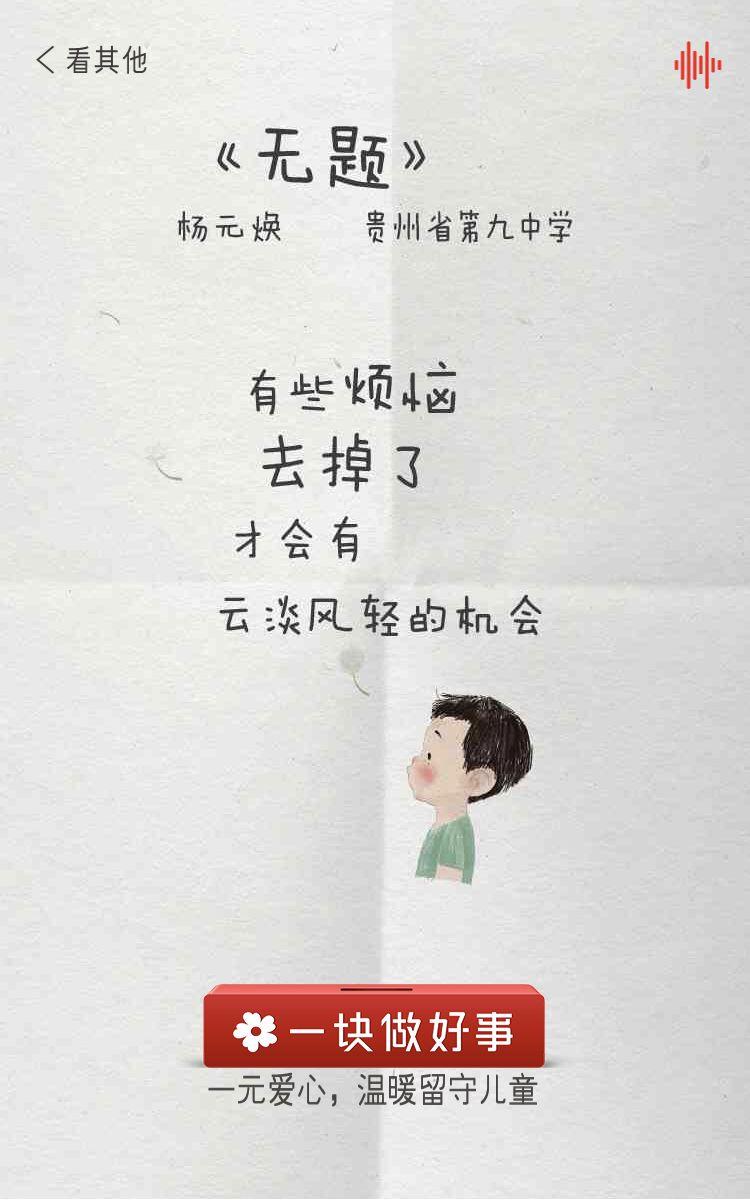 看其他
《无题》
杨元焕 贵州省第九中学
有些烦恼
去掉了
才会有
云淡风轻的机会
一块做好事
一元爱心，温暖留守儿童